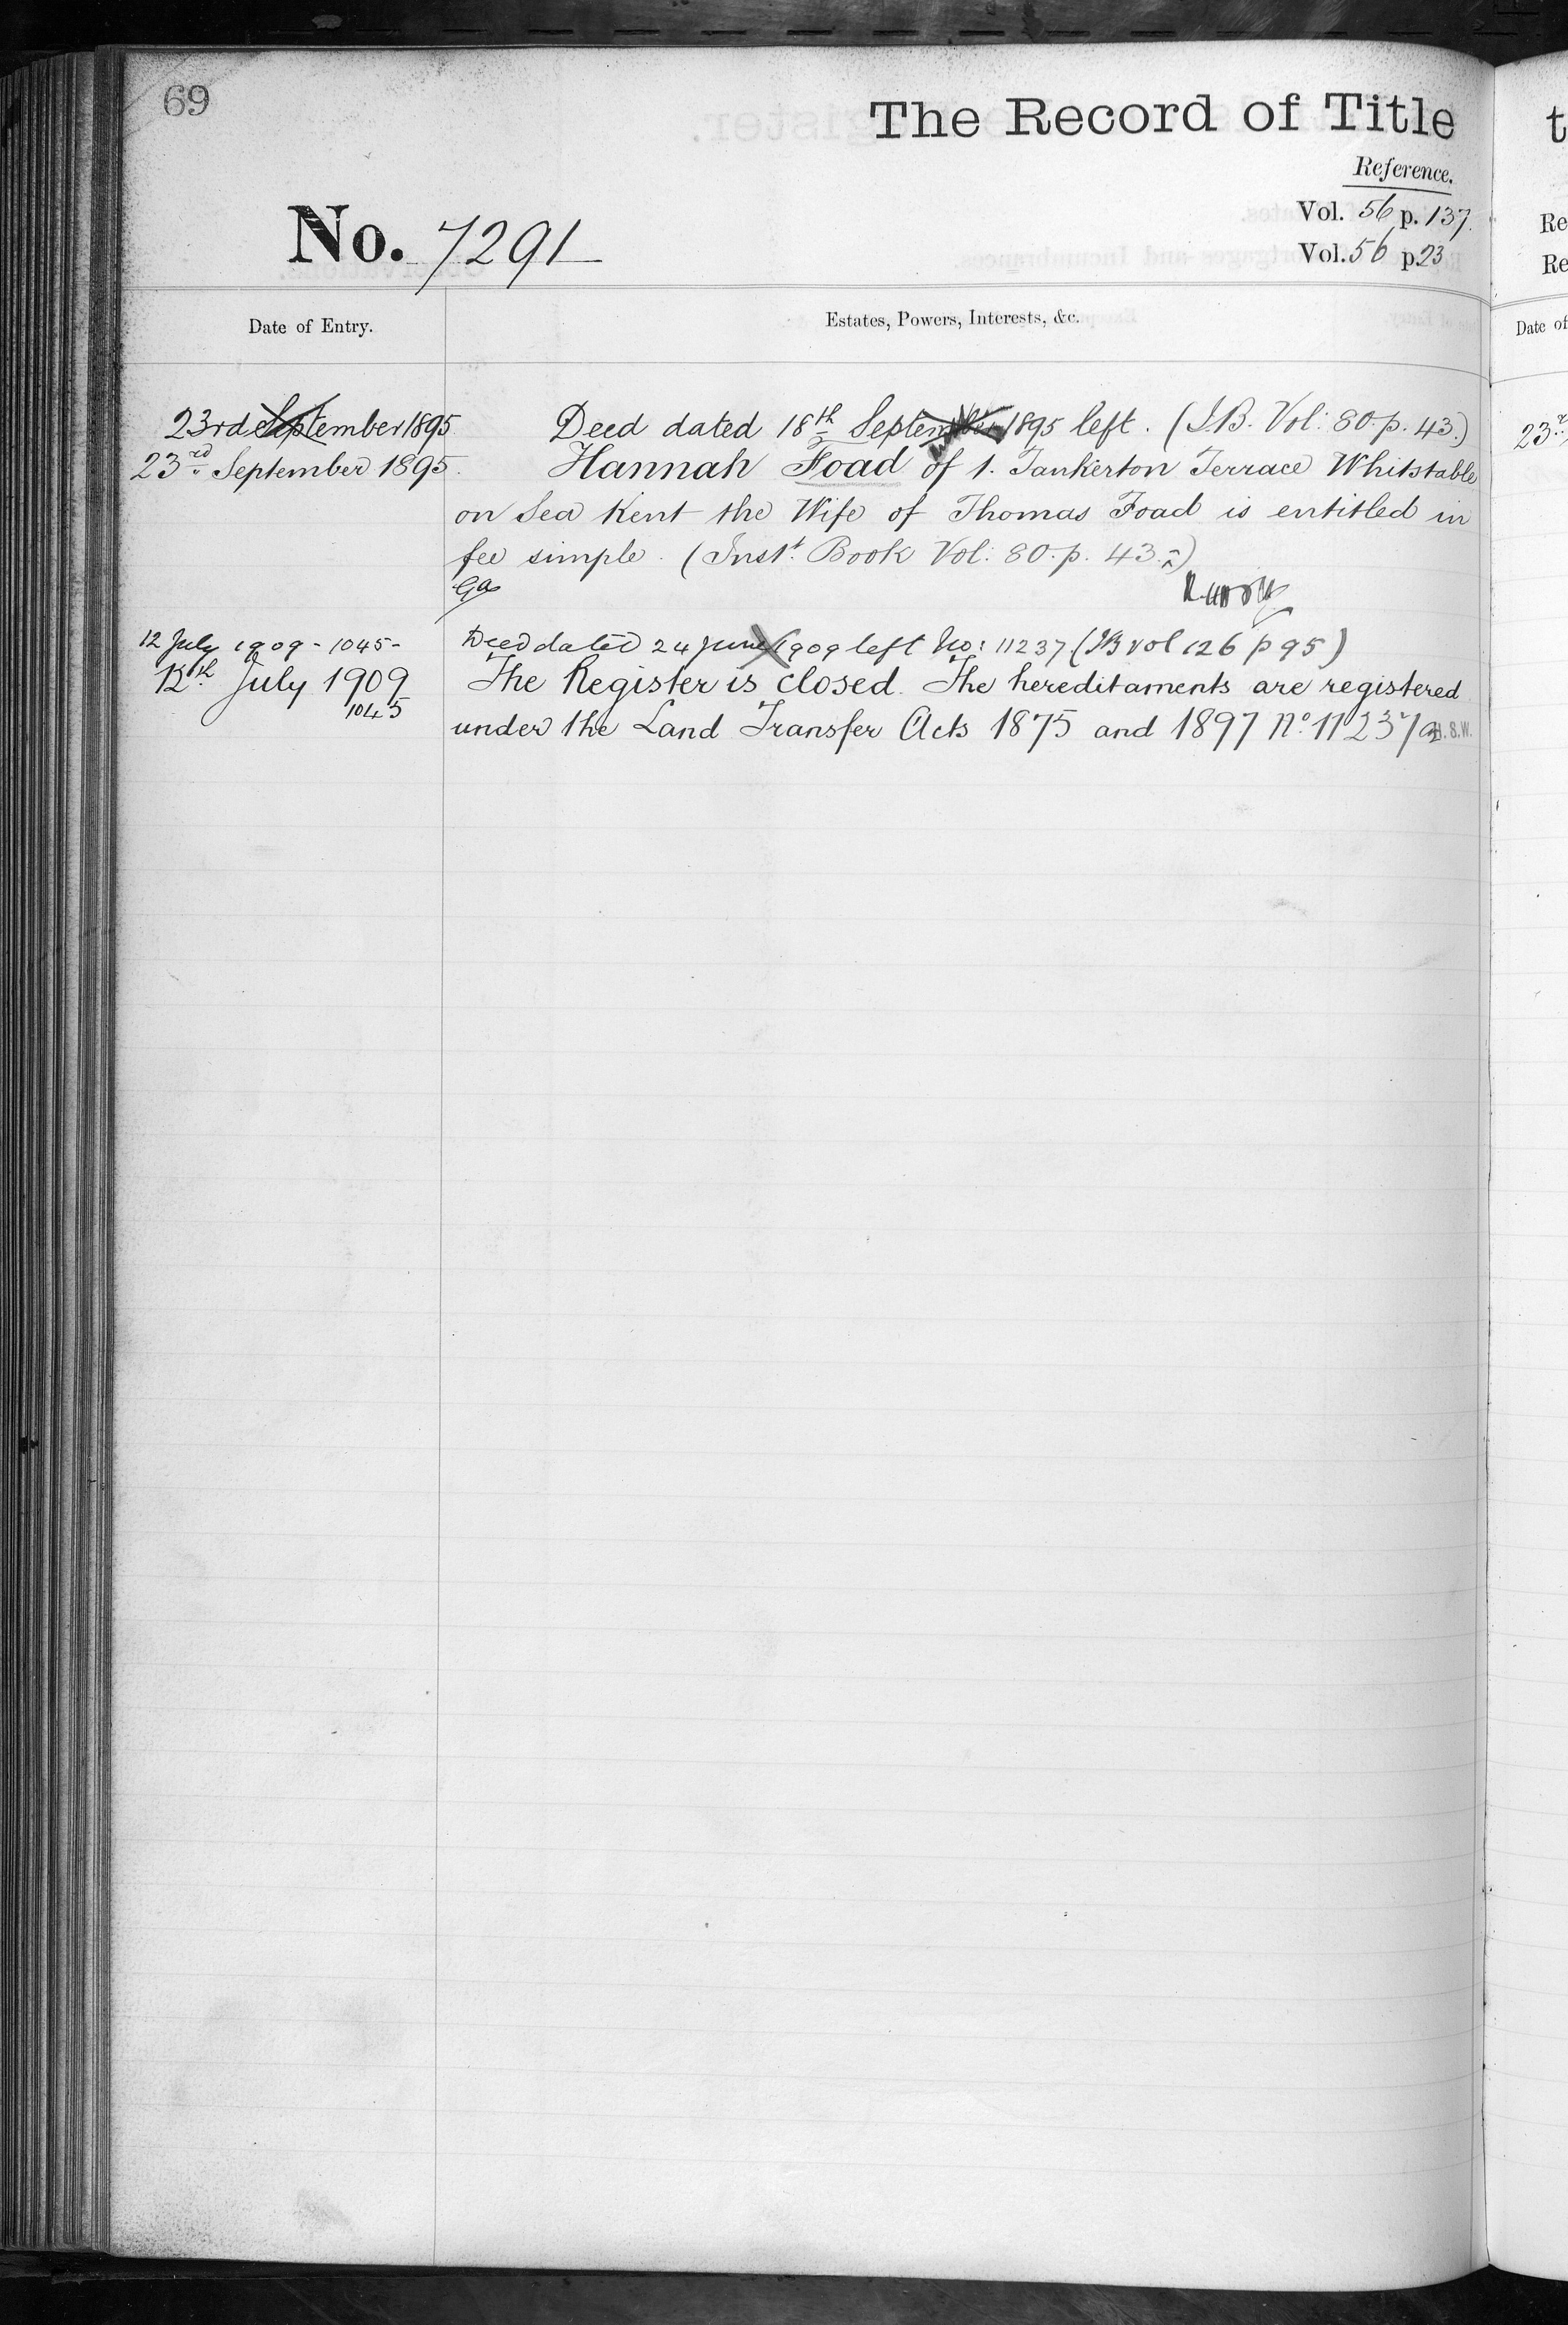 69
The Record of Title
Reference.
Vol. 56 p. 137.
No. 7291
Vol. 56 p. 23
Date of Entry.
Estates, Powers, Interests, &c.
23rd September 1895 Deed dated 18th September 1895 left. (I.B. Vol: 80. p. 43.)
23rd September 1895. Hannah Foad of 1. Tankerton Terrace Whitstable
on Sea Kent the Wife of Thomas Foad is entitled in
fee simple. (Inst. Book Vol: 80. p. 43.)
12 July 1909 - 1045 - Deed dated 24 June 1909 left No: 11237 (IB vol 126 p 95)
12th July 1909 The Register is closed. The hereditaments are registered
1045 under the Land Transfer Acts 1875 and 1897 No. 11237 H.S.W.
t
Re
Re
Date of
23rd